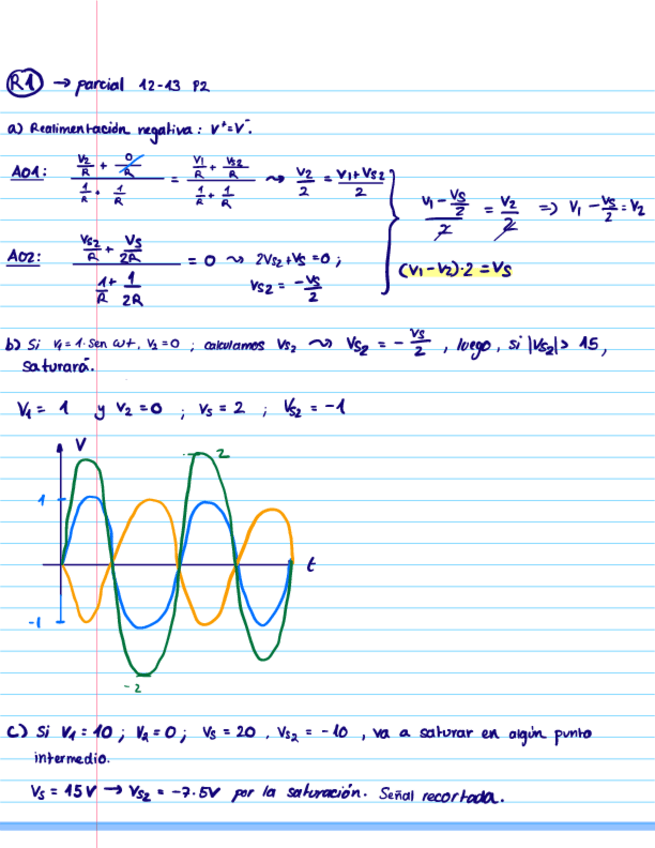 R1 → parcial 12-13 P2
a) Realimentación negativa: V⁺=V⁻.
AO1: (V2/R + 0/R)/(1/R + 1/R) = (V1/R + VS2/R)/(1/R + 1/R) ⇝ V2/2 = (V1+VS2)/2
(V1 - VS/2)/2 = V2/2 => V1 - VS/2 = V2
AO2: (VS2/R + VS/2R)/(1/R + 1/2R) = 0 ⇝ 2VS2 + VS = 0;
VS2 = -VS/2
(V1-V2)·2 = VS
b) Si V1 = 1·Sen ωt, V2 = 0 ; calculamos VS2 ⇝ VS2 = - VS/2 , luego, si |VS2| > 15,
saturará.
V1 = 1 y V2 = 0 ; VS = 2 ; VS2 = -1
V
2
1
t
-1
-2
c) Si V1 = 10 ; V2 = 0 ; VS = 20 , VS2 = -10 , va a saturar en algún punto
intermedio.
VS = 15V → VS2 = -7.5V por la saturación. Señal recortada.